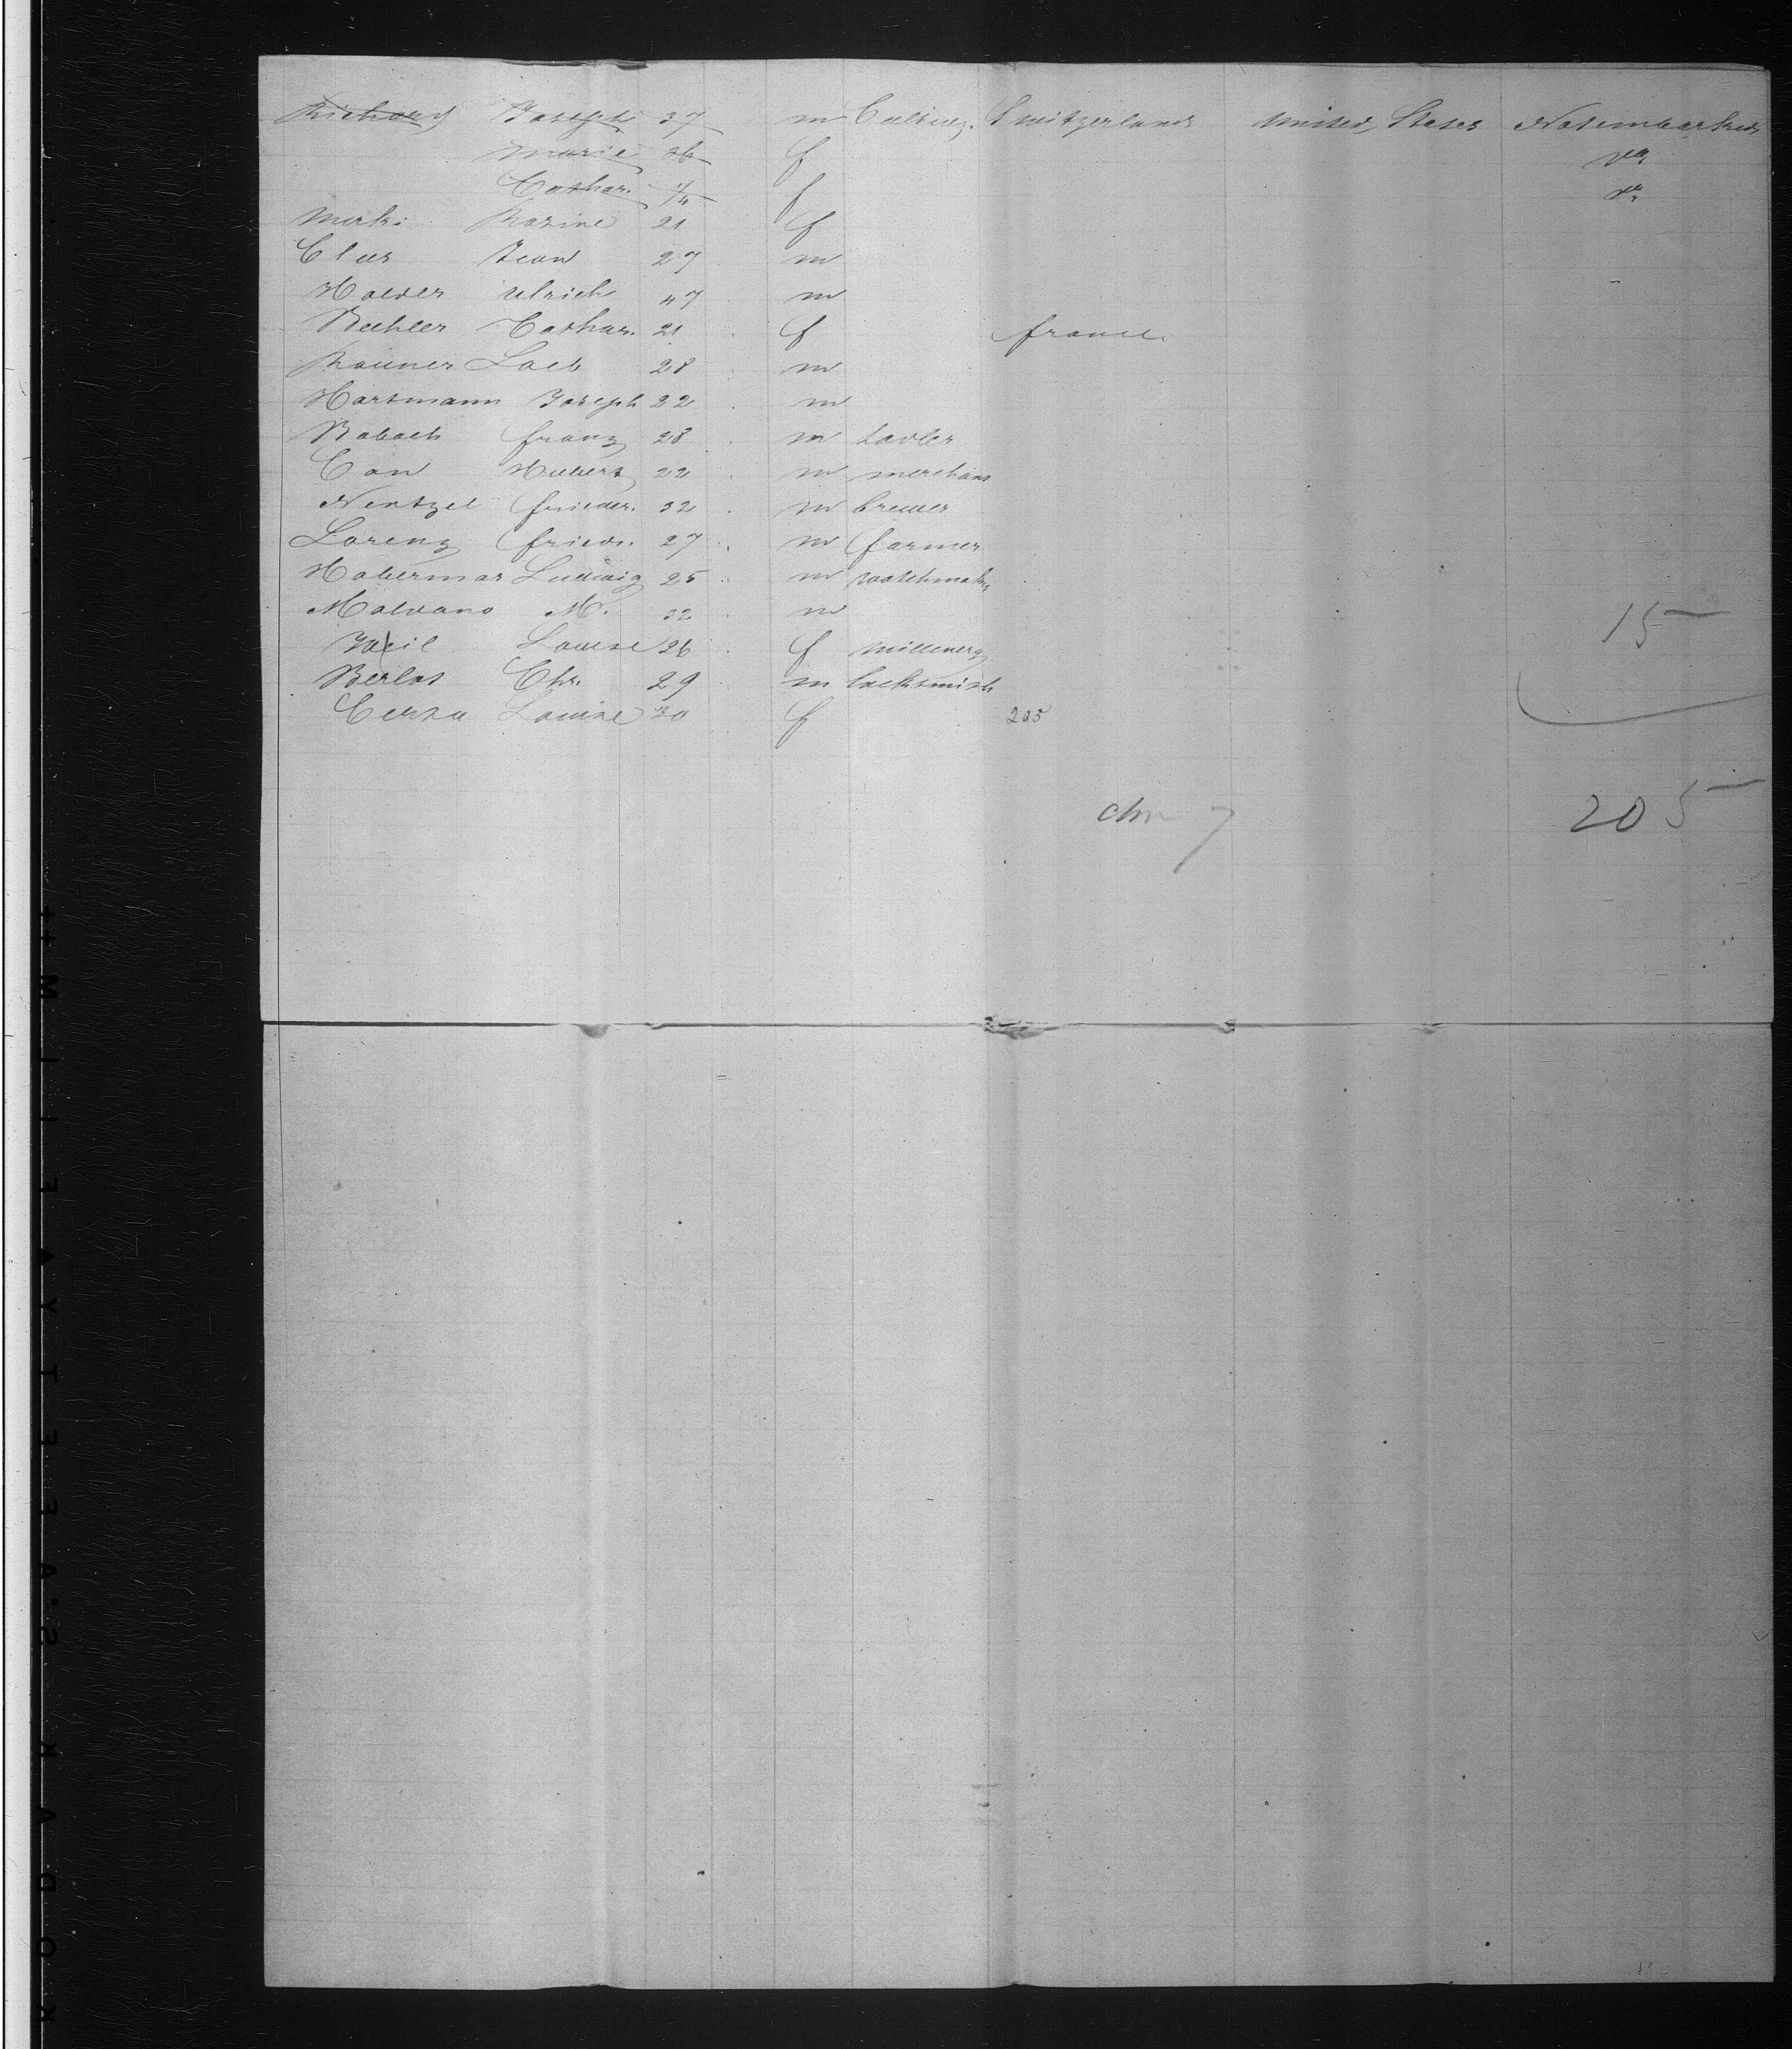 Richard Joseph 37 m Cultiv. Switzerland United States Not embarked
Marie 36 f do
Cathar. 1/4 f do
Merki Rosine 21 f
Clus Jean 27 m
Halder Ulrich 47 m
Buhler Cathar. 21 f france
Rauner Loeb 28 m
Hartmann Joseph 22 m
Robach franz 28 m
Con Hubert 22 m merchant
Nentzel frieder. 32 m brewer
Lorenz friedr. 27 m farmer
Habermas Ludwig 25 m watchmaker
Malvano M. 32 m 15
Louise 26 f millenery
Berlot Chr. 29 m locksmith
Louise 30 f 205
chn 7 205
KODAK S.AFETY FILM